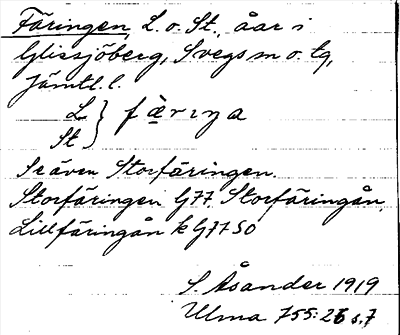 Färingen, L. o. St., åar i
Glissjöberg, Svegs sn o. tg,
Jämtl. l.
L
St } fä̀rıŋa
Se även Storfäringen.
Storfäringen G77 Storfäringån
Lillfäringån k G77 SO
S. Åsander 1919
Ulma 755:26 s. 7